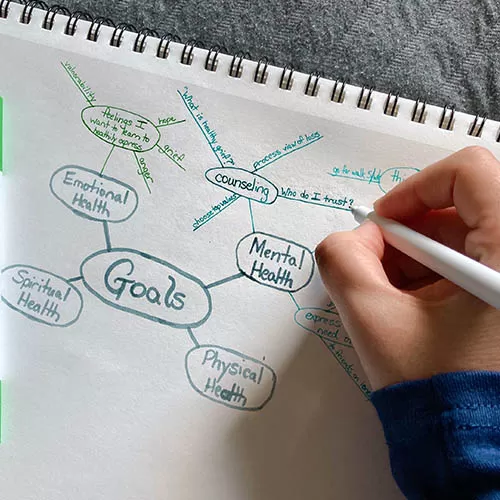 vulnerability
feelings I
want to learn to
healthily express
hope
grief
anger
"What is healthy grief?"
process view of loss
counseling
Who do I trust?
choose top values
go for walk 5
th
Emotional
Health
Mental
Health
Goals
Spiritual
Health
Physical
Health
express
need